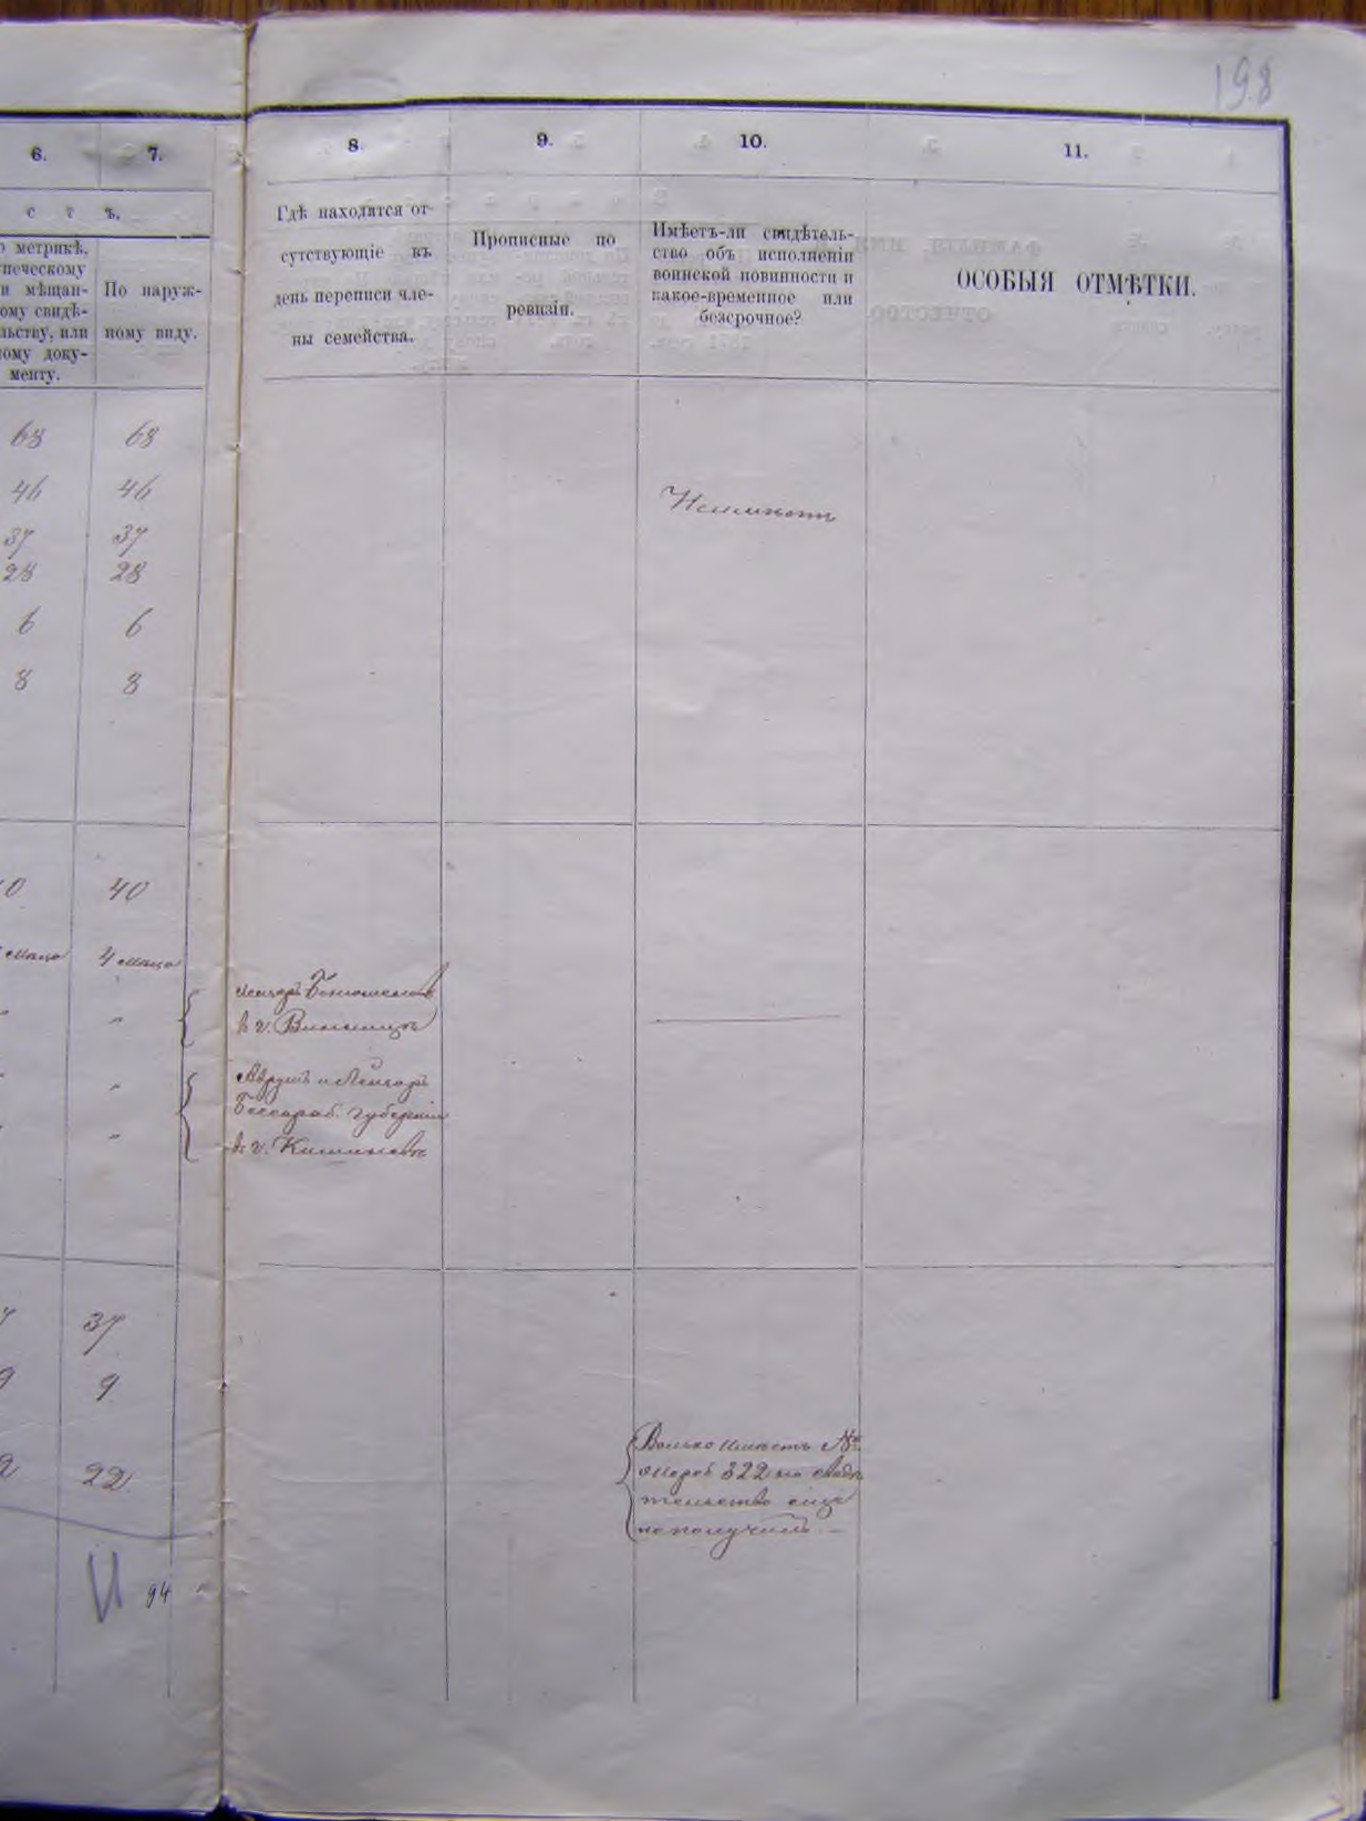 198
6. 7. 8. 9. 10. 11.
с т ъ.
о метрикѣ,
печескому
и мѣщан-
ому свидѣ-
льству, или
ному доку-
менту.
По наруж-
ному виду.
Гдѣ находятся от-
сутствующіе въ
день переписи чле-
ны семейства.
Прописные по
ревизіи.
Имѣетъ-ли свидѣтель-
ство объ исполненіи
воинской повинности и
какое-временное или
безсрочное?
ОСОБЫЯ ОТМѢТКИ.
68 68
46 46
Неимѣетъ
37 37
28 28
6 6
8 8
0 40
4 мѣсяца
в г. Винницѣ
Аврумъ и Лейзоръ
Бессараб. губерніи
в г. Кишиневѣ
37
9 9
Волько имѣетъ №
жереб 322 но свидѣ
тельство еще
неполучилъ. —
2 22
94